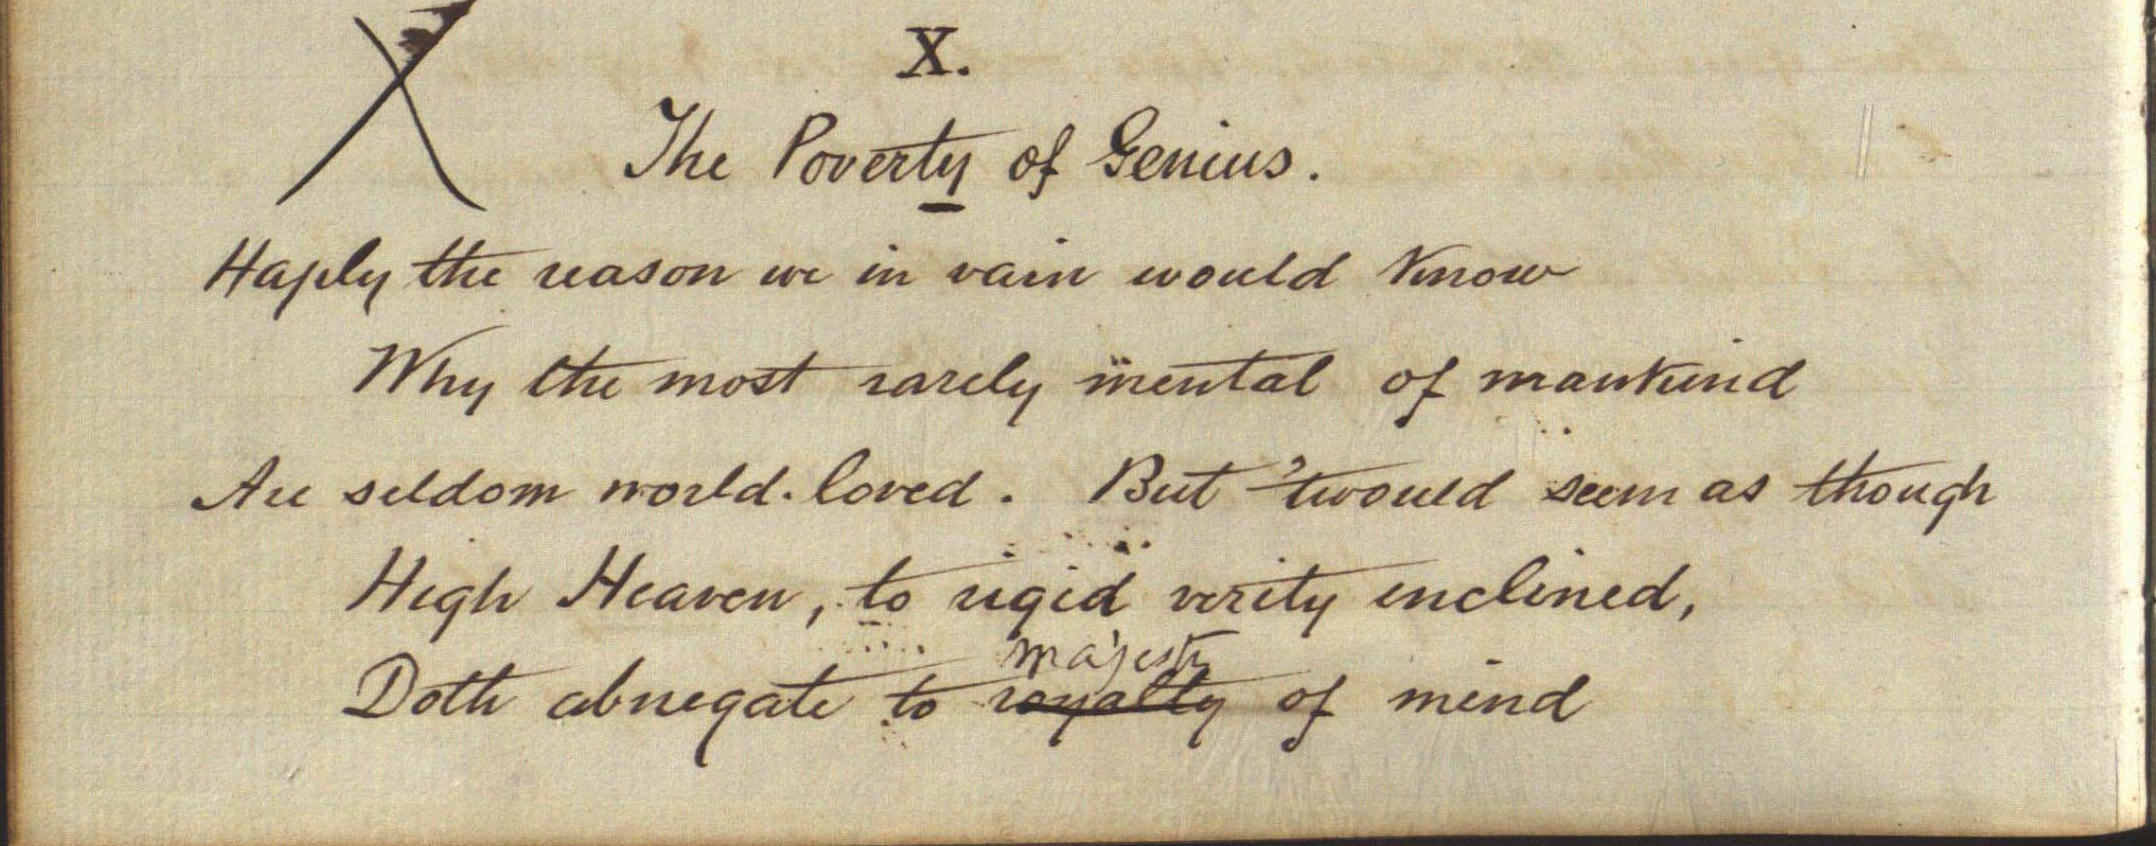 X.
The Poverty of Genius.
Haply the reason we in vain would know
Why the most rarely mental of mankind
Are seldom world-loved. But 'twould seem as though
High Heaven, to rigid verity inclined,
majesty
Doth abnegate to royalty of mind